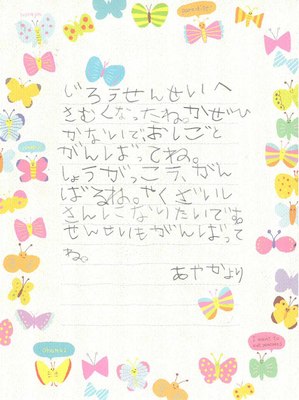 いろうせんせいへ
さむくなったね。かぜひ
かないで、おしごと
がんばってね。
しょうがっこう、がん
ばるね。やくざいし
さんになりたいですね
せんせいもがんばって
ね。
あやかより